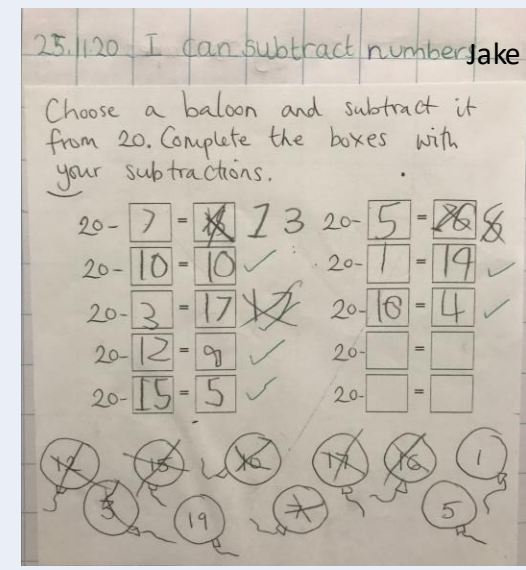 25.11.20 I can subtract numbers Jake
Choose a baloon and subtract it
from 20. Complete the boxes with
your subtractions.
20- 7 = 13 20- 5 =
20- 10 = 10 ✓ 20- 1 = 19 ✓
20- 3 = 17 20- 16 = 4 ✓
20- 12 = 8 ✓ 20- =
20- 15 = 5 ✓ 20- =
12 15 10 17 16 1
3 19 7 5